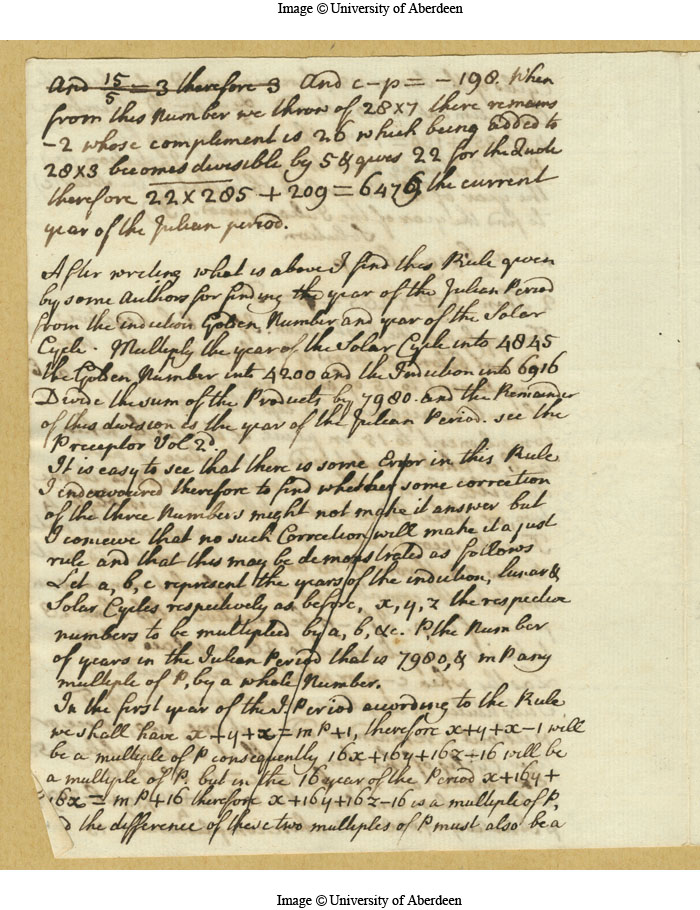 Image © University of Aberdeen
And 15/5 = 3 therefore 3 And c-p = -198. When
from this Number we throw of 28×7 there remains
-2 whose complement is 26 which being added to
28×3 becomes divisible by 5 & gives 22 for the Quote
therefore 22×285 + 209 = 6479 the current
year of the Julian period.
After writing what is above I find this Rule given
by some Authors for finding the year of the Julian Period
from the indiction Golden Number and year of the Solar
Cycle. Multiply the year of the Solar Cycle into 4845
the Golden Number into 4200 and the Indiction into 6916
Divide the sum of the Products by 7980. and the Remainder
of this division is the year of the Julian Period. see the
Preceptor Vol 2d.
It is easy to see that there is some Error in this Rule
I endeavoured therefore to find whether some correction
of the three Numbers might not make it answer but
I conceive that no such Correction will make it a just
rule and that this may be demonstrated as follows
Let a, b, c represent the years of the indiction, lunar &
Solar Cycles respectively as before, x, y, z the respective
numbers to be multiplied by a, b, & c. P, the Number
of years in the Julian Period that is 7980, & mP any
multiple of P, by a whole Number.
In the first year of the J. Period according to the Rule
we shall have x+y+z = mP+1, therefore x+y+z-1 will
be a multiple of P consequently 16x+16y+16z-16 will be
a multiple of P. but in the 16 year of the Period x+16y+
16z = mP+16 therefore x+16y+16z-16 is a multiple of P,
the difference of these two multiples of P must also be a
Image © University of Aberdeen